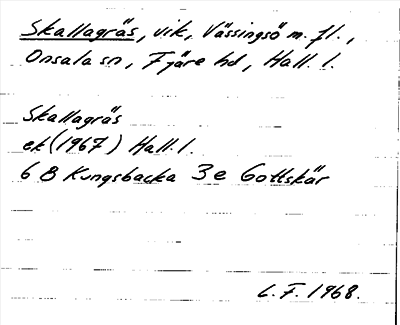 Skallagräs, vik, Vässingsö m. fl.,
Onsala sn, Fjäre hd, Hall. l.
Skallagräs
ek (1967) Hall. l.
6 B Kungsbacka 3e Gottskär
L. F. 1968.